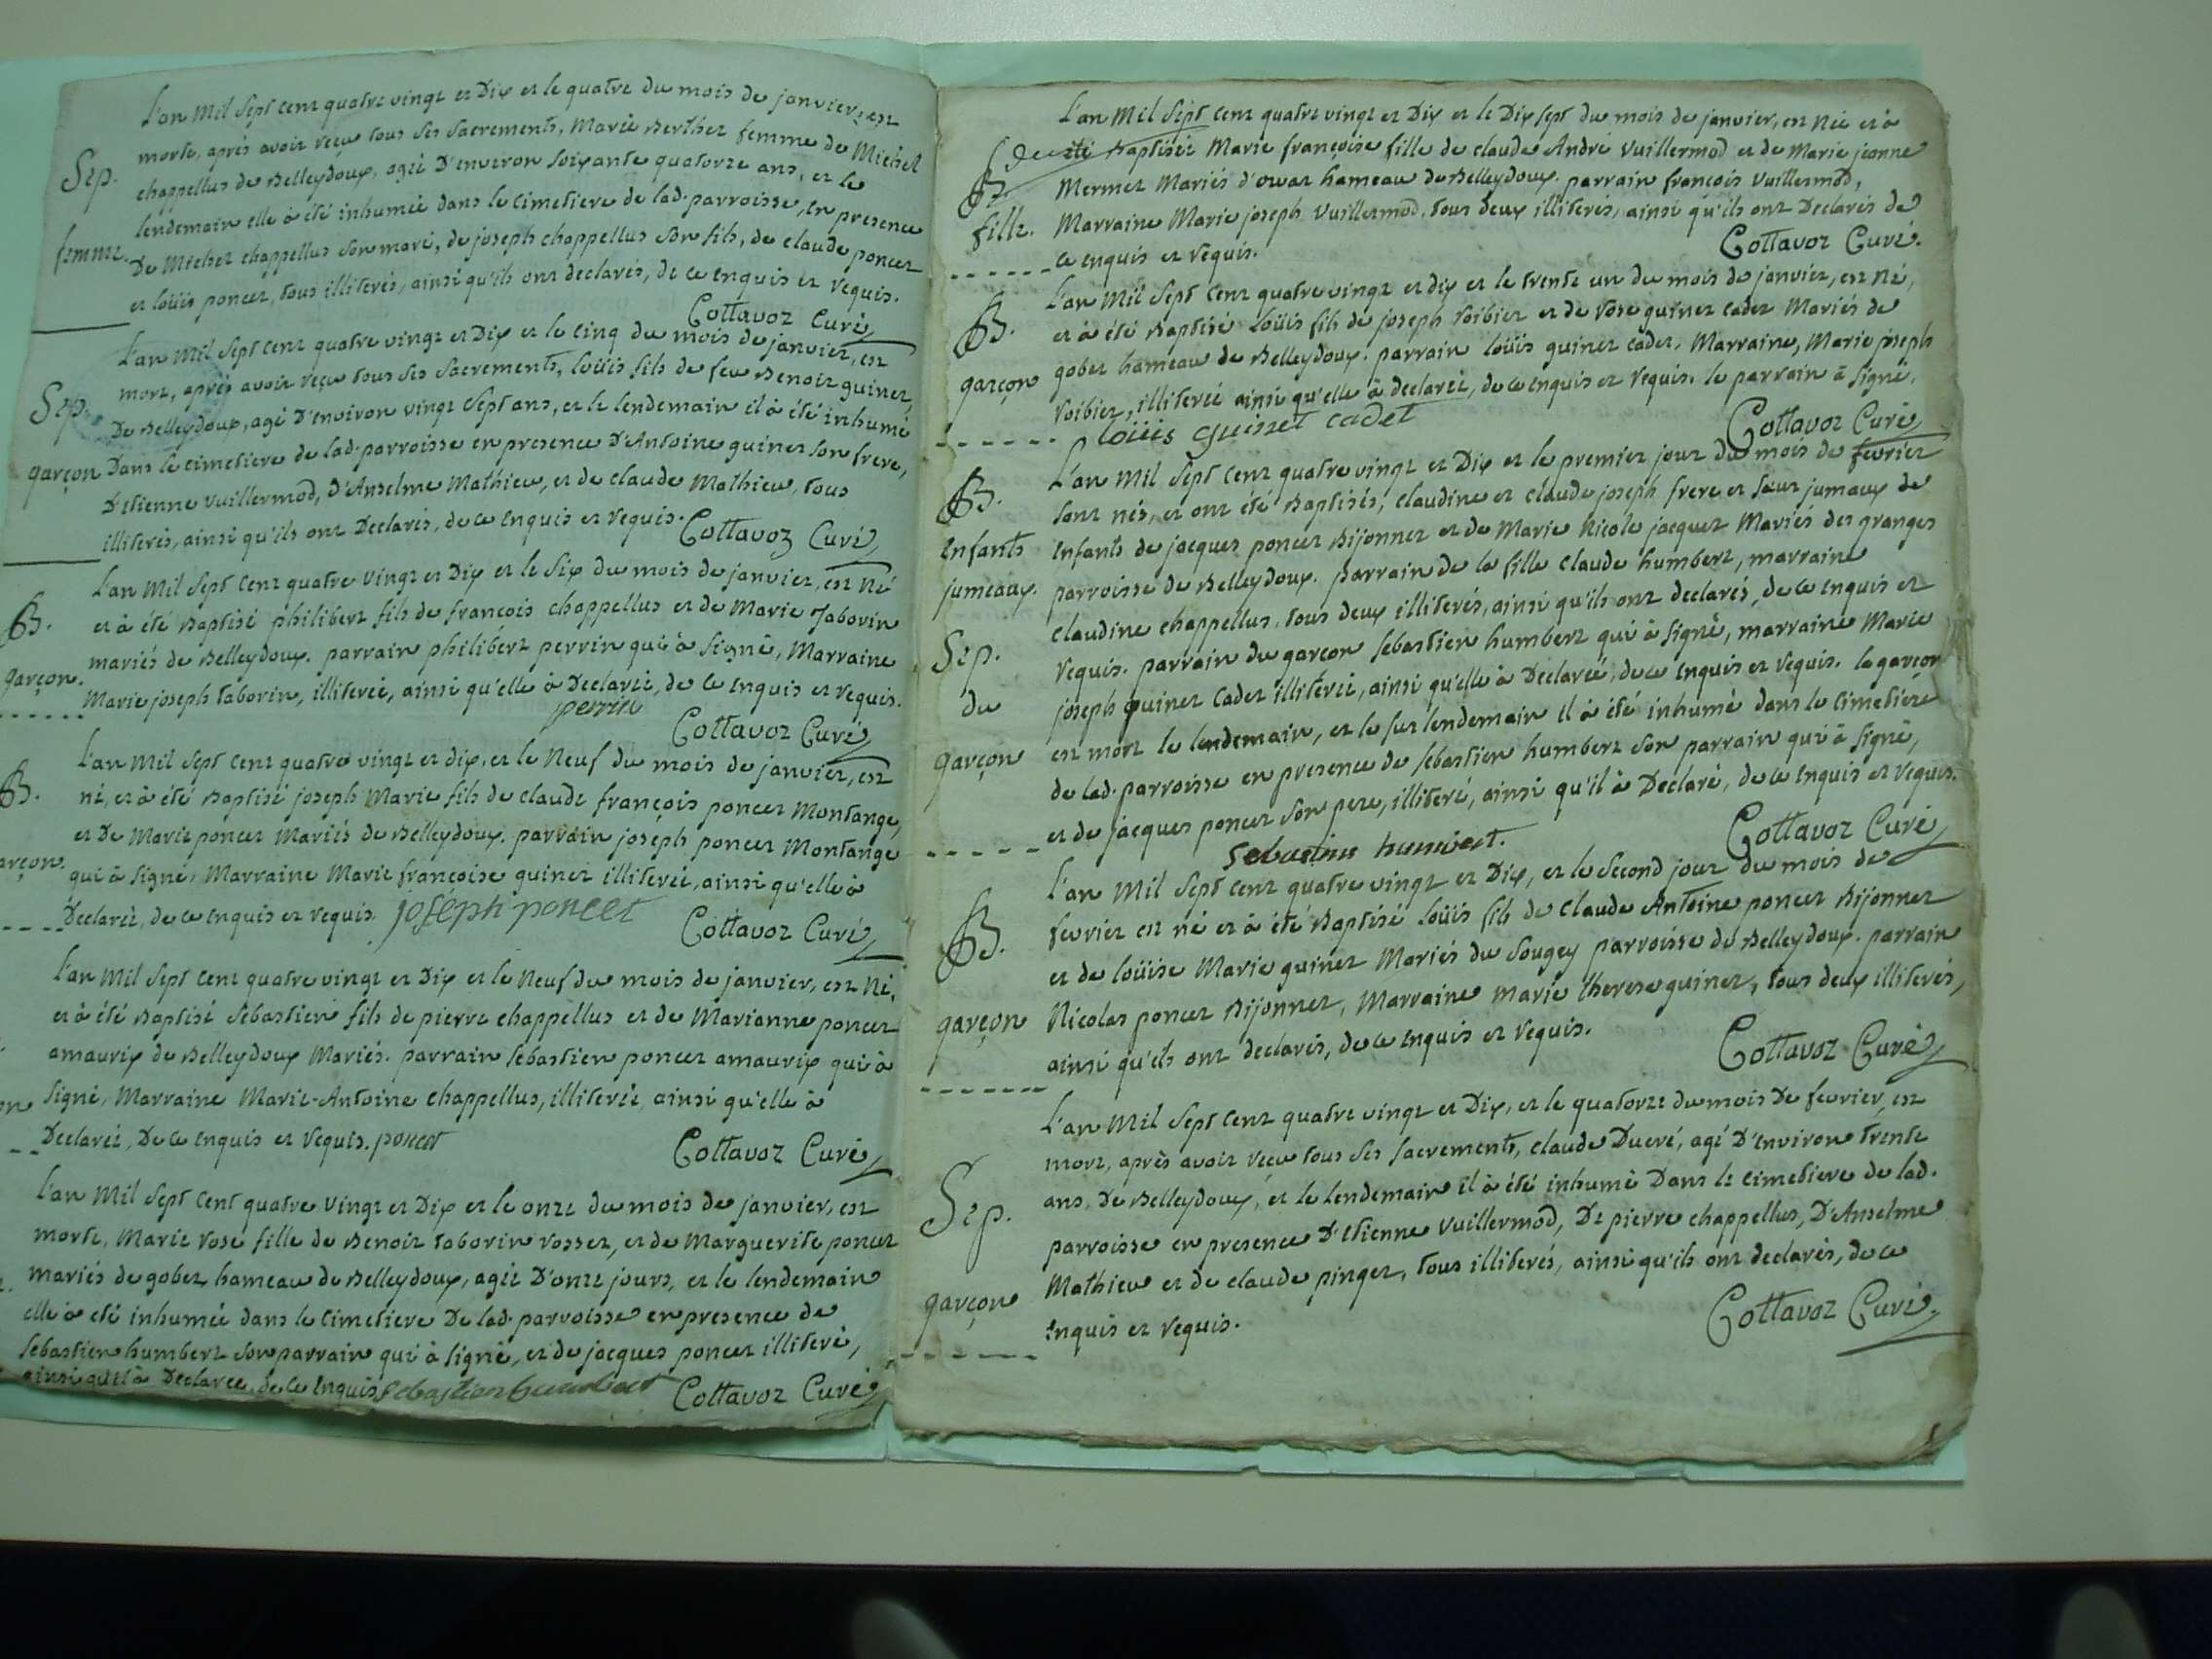 L'an Mil Sept cent quatre vingt et Dix et le quatre du mois de janvier, est
morte, après avoir reçu tous ses sacrements, Marie Berthet femme de Michel
Sep. chappellus de Belleydoux, agée D'environ soixante quatorze ans, et le
lendemain elle à été inhumée dans le cimetiere de lad. parroisse, en presence
femme. De Michel chappellus son mari, de joseph chappellus son fils, de claude poncet
et loüis poncet, tous illiterés, ainsi qu'ils ont declarés, de ce enquis et requis.
Cottavoz Curé
L'an Mil Sept cent quatre vingt et Dix et le cinq du mois de janvier, est
mort, après avoir reçu tous ses Sacrements, loüis fils de feu Benoit guinet,
Sep. De Belleydoux, agé D'environ vingt Sept ans, et le lendemain il à été inhumé
garçon Dans le cimetiere de lad. parroisse en presence D'Antoine guinet son frere,
D'etienne vuillermod, D'Anselme Mathieu, et de claude Mathieu, tous
illiterés, ainsi qu'ils ont Declarés, de ce enquis et requis.
Cottavoz Curé
L'an Mil Sept cent quatre vingt et Dix et le Six du mois de janvier, est Né
B. et à été Baptisé philibert fils de francois chappellus et de Marie Taborin
mariés de Belleydoux. parrain philibert perrin qui à Signé, Marraine
garçon. Marie joseph taborin, illiterée, ainsi qu'elle à Declarée, de ce enquis et requis.
perrin
Cottavoz Curé
L'an Mil Sept cent quatre vingt et dix, et le Neuf du mois de janvier, est
B. né, et à été Baptisé joseph Marie fils de claude françois poncet Montange,
et De Marie poncet Mariés de Belleydoux. parrain joseph poncet Montange
arçon. qui à Signé, Marraine Marie francoise guinet illiterée, ainsi qu'elle à
Declarée, de ce enquis et requis. joseph poncet
Cottavoz Curé
L'an Mil Sept cent quatre vingt et Dix et le Neuf du mois de janvier, est Né,
et à été Baptisé Sebastien fils de pierre chappellus et de Marianne poncet
amaurix de Belleydoux Mariés. parrain Sebastien poncet amaurix qui à
on Signé, Marraine Marie-Antoine chappellus, illiterée, ainsi qu'elle à
Declarée, De ce enquis et requis. poncet
Cottavoz Curé
L'an Mil Sept Cent quatre vingt et Dix et le onze du mois de janvier, est
morte, Marie rose fille de Benoit taborin rosset, et de Marguerite poncet
mariés de gobet hameau de Belleydoux, agée D'onze jours, et le lendemain
elle à été inhumée dans le cimetiere De lad. parroisse en presence de
Sebastien humbert son parrain qui à Signé, et de jacques poncet illiteré,
ainsi qu'il à Declaree, de ce enquis Sebastien humbert Cottavoz Curé
L'an Mil Sept cent quatre vingt et Dix et le Dix sept du mois de janvier, est née et à
été Baptisée Marie françoise fille de claude André vuillermod et de Marie jeanne
B. Mermet Mariés d'orvaz hameau de Belleydoux. parrain françois vuillermod,
fille. Marraine Marie joseph vuillermod, tous deux illiterés, ainsi qu'ils ont Declarés de
ce enquis et requis.
Cottavoz Curé.
L'an Mil Sept Cent quatre vingt et dix et le trente un du mois de janvier, est Né,
B. et à été Baptisé Loüis fils de joseph roibier et de rose guinet cadet Mariés de
gobet hameau de Belleydoux. parrain loüis guinet cadet, Marraine, Marie joseph
garçon roibier, illiterée ainsi qu'elle à declarée, de ce enquis et requis. le parrain à Signé.
loüis guinet cadet
Cottavoz Curé
L'an Mil Sept Cent quatre vingt et Dix et le premier jour du mois de fevrier
B. sont nés, et ont été Baptisés, claudine et claude joseph frere et sœur jumaux de
Enfants Enfants de jacques poncet Bijonnet et de Marie Nicole jacquet Mariés des granges
jumeaux. parroisse de Belleydoux. parrain de la fille claude humbert, marraine
claudine chappellus, tous deux illiterés, ainsi qu'ils ont declarés, de ce enquis et
Sep. requis. parrain du garçon Sebastien humbert qui à Signé, marraine Marie
du joseph guinet cadet illiterée, ainsi qu'elle à Declarée, de ce enquis et requis. le garçon
est mort le lendemain, et le sur lendemain il à été inhumé dans le cimetiere
garçon de lad. parroisse en presence de Sebastien humbert son parrain qui à Signé,
et de jacques poncet son pere, illiteré, ainsi qu'il à Declaré, de ce enquis et requis.
Sebastien humbert.
Cottavoz Curé
L'an Mil Sept cent quatre vingt et Dix, et le second jour du mois de
B. fevrier est né et à été Baptisé Loüis fils de claude Antoine poncet Bijonnet
et de loüise Marie guinet Mariés du Sougey parroisse de Belleydoux. parrain
garçon Nicolas poncet Bijonnet, Marraine Marie therese guinet, tous deux illiterés,
ainsi qu'ils ont declarés, de ce enquis et requis.
Cottavoz Curé
L'an Mil Sept Cent quatre vingt et Dix, et le quatorze du mois De fevrier, est
mort, après avoir reçu tous ses sacrements, claude Ducré, agé D'environ trente
Sep. ans, De Belleydoux, et le lendemain il à été inhumé Dans le cimetiere de lad.
parroisse en presence D'etienne vuillermod, De pierre chappellus, D'Anselme
garçon Mathieu et de claude pinget, tous illiterés, ainsi qu'ils ont declarés, de ce
Enquis et requis.
Cottavoz Curé